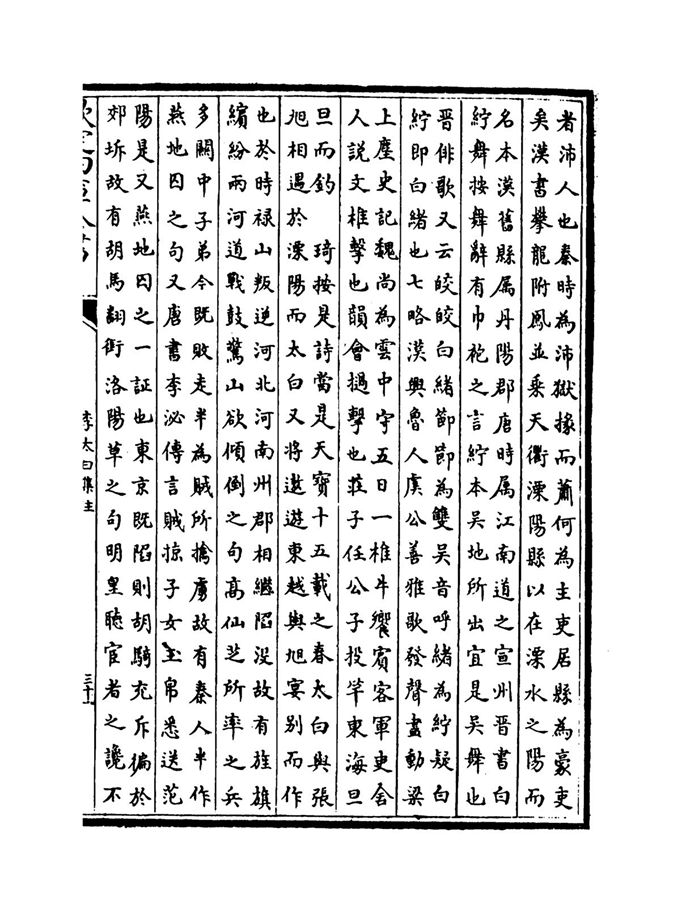 者沛人也秦時為沛獄掾而蕭何為主吏居縣為豪吏
矣漢書攀龍附鳳並乘天衢溧陽縣以在溧水之陽而
名本漢舊縣属丹陽郡唐時属江南道之宣州晋書白
紵舞按舞辭有巾袍之言紵本吳地所出宜是吳舞也
晋俳歌又云皎皎白緒節節為雙吳音呼緒為紵疑白
紵即白緒也七略漢興魯人虞公善雅歌發聲盡動梁
上塵史記魏尚為雲中守五日一椎牛饗賓客軍吏舍
人説文椎擊也韻會撾擊也莊子任公子投竿東海旦
旦而釣　琦按是詩當是天寶十五載之春太白與張
旭相遇於溧陽而太白又将遨遊東越與旭宴别而作
也於時禄山叛逆河北河南州郡相繼陷没故有旌旗
繽紛兩河道戰鼓驚山欲傾倒之句高仙芝所率之兵
多關中子弟今既敗走半為賊所擒虜故有秦人半作
燕地囚之句又唐書李泌傳言賊掠子女玉帛悉送范
陽是又燕地囚之一証也東京既陷則胡騎充斥徧於
郊坼故有胡馬翻銜洛陽草之句明皇聴宦者之讒不
欽定四庫全書
李太白集注